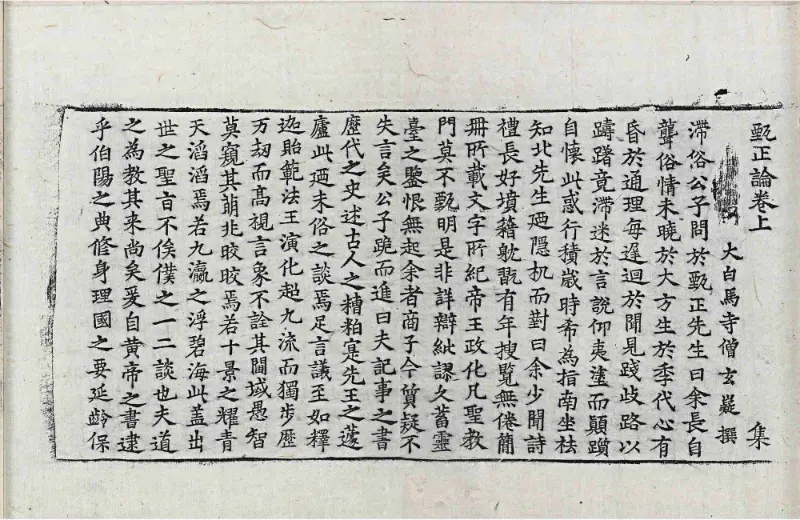 甄正論卷上　集
大白馬寺僧玄嶷撰
滯俗公子問於甄正先生曰余長自
聾俗情未曉於大方生於季代心有
昏於通理每遲迴於聞見踐歧路以
躊躇竟滯迷於言說仰夷塗而顛躓
自懷此惑行積歲時希為指南坐祛
知北先生廼隱机而對曰余少聞詩
禮長好墳籍躭翫有年搜覧無倦簡
冊所載文字所紀帝王政化凡聖教
門莫不甄明是非詳辯紕謬久蓄靈
臺之鑒恨無起余者商子今質疑不
失言矣公子跪而進曰夫記事之書
歷代之史述古人之糟粕寔先王之蘧
廬此廼末俗之談焉足言議至如釋
迦貽範法王演化起九流而獨步歷
万劫而高視言象不詮其閫域愚智
莫窺其萠兆皎皎焉若十景之耀青
天滔滔焉若九瀛之浮碧海此蓋出
世之聖言不俟僕之一二談也夫道
之為教其来尚矣爰自黄帝之書逮
乎伯陽之典修身理國之要延齡保